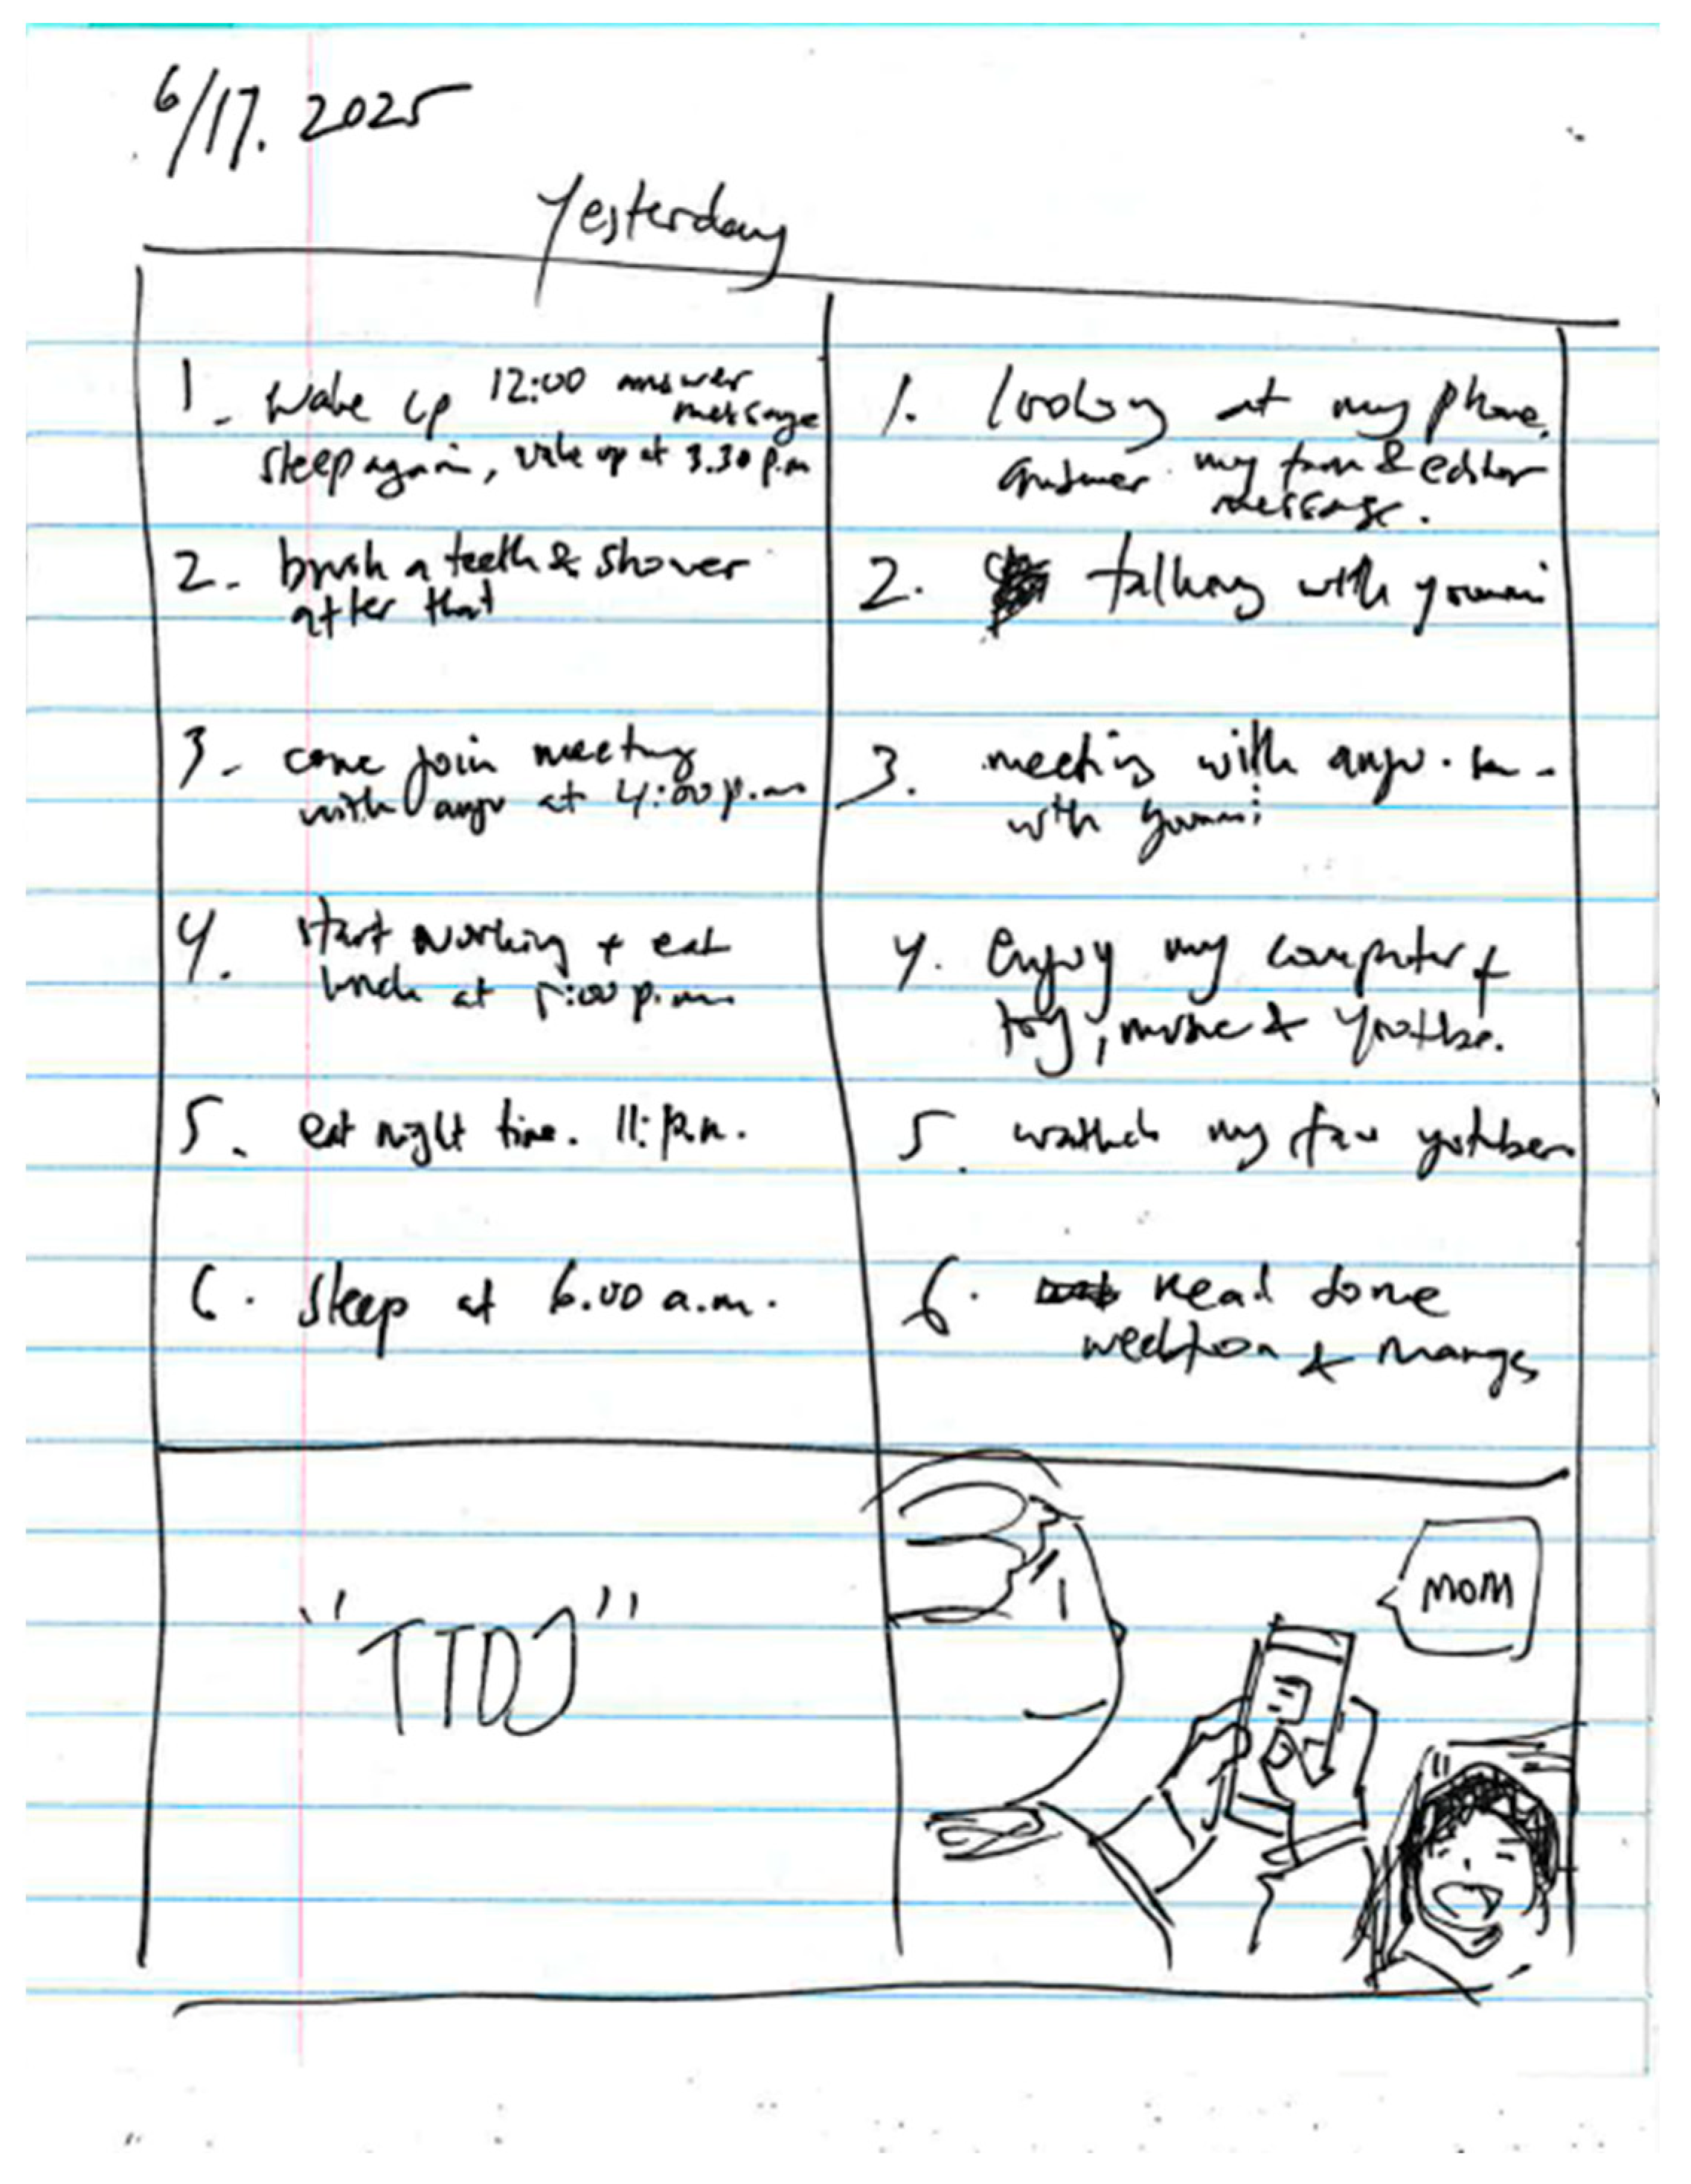 6/17. 2025
Yesterday
1. wake up 12:00 answer
message
sleep again, wake up at 3.30 p.m
2. brush a teeth & shower
after that
3. come join meeting
with at 4:00 p.m
4. start working + eat
lunch at 5:00 p.m.
5. eat night time. 11: p.m.
6. sleep at 6.00 a.m.
1. looking at my phone.
answer my & editor
message.
2. talking with
3. meeting with
with
4. enjoy my computer +
toy, music &
5. my fav
6. read some
&
"TTDJ"
MOM